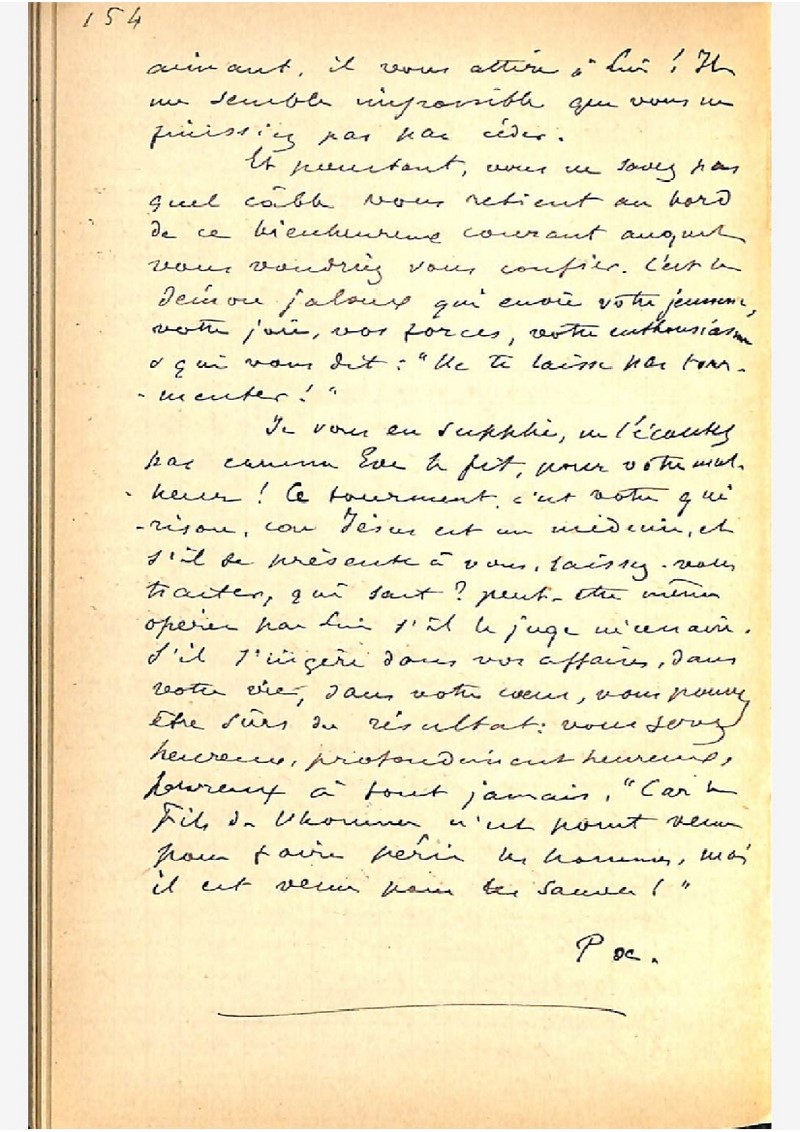 154
aimant, il vous attire à Lui ! Il
me semble impossible que vous ne
puissiez pas par céder.
Et pourtant, vous ne savez pas
quel câble vous retient au bord
de ce bienheureux courant auquel
vous voudriez vous confier. C'est le
démon jaloux qui envie votre jeunesse,
votre joie, vos forces, votre enthousiasme
& qui vous dit : "Ne te laisse pas tour-
-menter ! "
Je vous en supplie, ne l'écoutez
pas comme Eve le fit, pour votre mal-
-heur ! Ce tourment, c'est votre gué
-rison, car Jésus est un médecin, et
s'il se présente à vous, laissez-vous
traiter, qui sait ? peut-être même
opérer par Lui s'il le juge nécessaire.
S'il s'ingère dans vos affaires, dans
votre vie, dans votre cœur, vous pouvez
être sûrs du résultat : vous serez
heureux, profondément heureux,
heureux à tout jamais. "Car le
Fils de l'homme n'est point venu
pour faire périr les hommes, mais
il est venu pour les sauver ! "